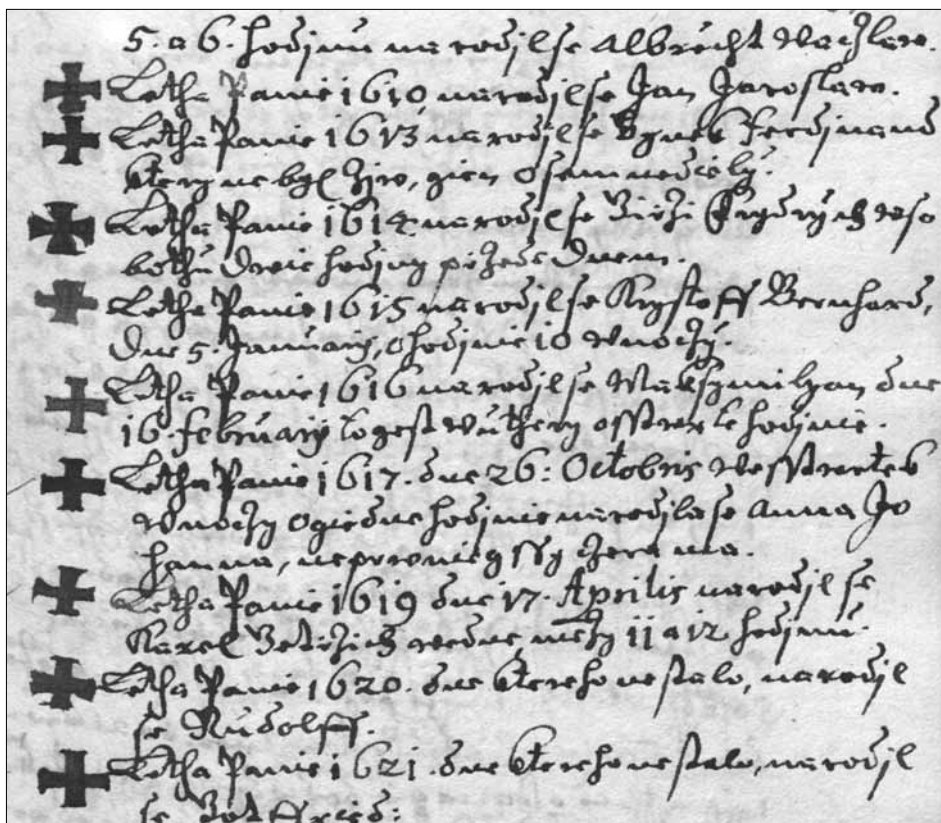 5. a 6. hodinu narodil se Albrecht Waczlaw.
Letha Panie 1610 narodil se Jan Jaroslaw.
Letha Panie 1613 narodil se Hynek Ferdinand
ktery nebyl ziw, gien osam nediely.
Letha Panie 1614 narodil se Girzi Frydrych w so
bothu dwie hodiny przede dnem.
Letha Panie 1615 narodil se Krystoff Bernhard,
dne 5. January, o hodinie 10 w noczy.
Letha Panie 1616 narodil se Maksymilyan dne
16. February to gest w uthery o sstwrte hodinie.
Letha Panie 1617. dne 26: Octobris we sstwrtek
w noczy o giedne hodinie narodila se Anna Jo
hanna, neprwnieyssy dcera ma.
Letha Panie 1619 dne 17. Aprilis narodil se
Karel w dne, mezy 11 a 12 hodinu.
Letha Panie 1620. dne kterehonestalo, narodil
se Rudolff.
Letha Panie 1621. dne kterehonestalo, narodil
se Gotffried: